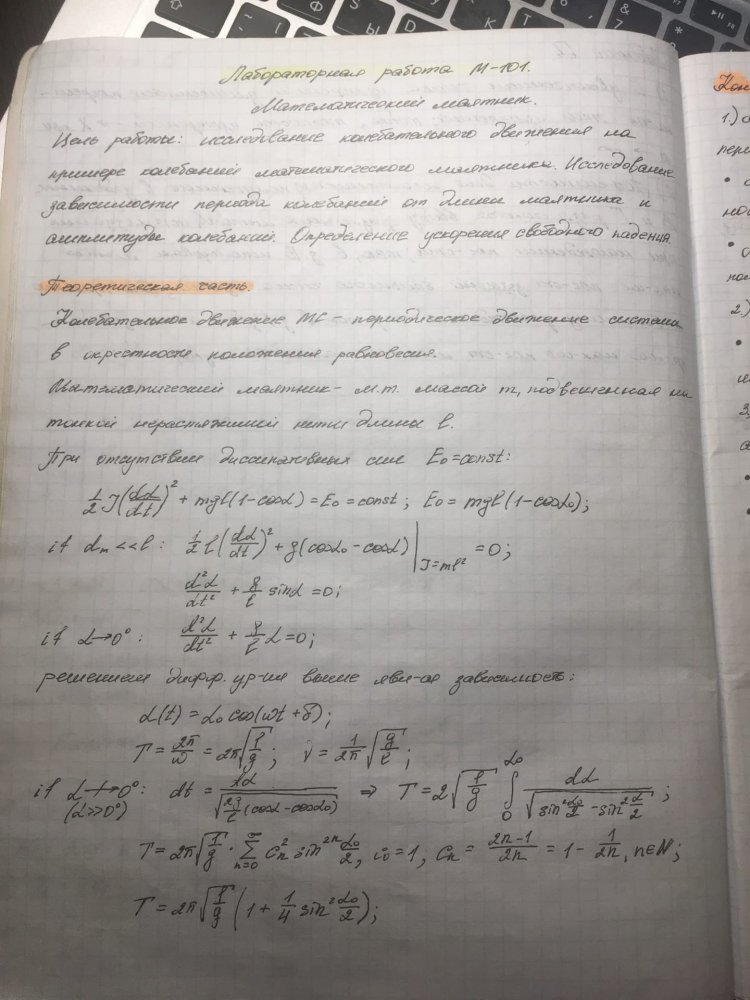 Лабораторная работа М-101.
Математический маятник.
Цель работы: исследование колебательного движения на
примере колебаний математического маятника. Исследование
зависимости периода колебаний от длины маятника и
амплитуды колебаний. Определение ускорения свободного падения
Теоретическая часть.
Колебательное движение МС - периодическое движение системы
в окрестности положения равновесия.
Математический маятник - м.т. массой m, подвешенная на
тонкой нерастяжимой нити длины l.
При отсутствии диссипативных сил E₀=const:
1/2 J(dα/dt)² + mgl(1-cosα) = E₀ = const; E₀ = mgl(1-cosα₀);
if dₘ<<l: 1/2 l(dα/dt)² + g(cosα₀ - cosα)|J=ml² = 0;
d²α/dt² + g/l sinα = 0;
if α→0°: d²α/dt² + g/l α = 0;
решением дифф. ур-ия выше явл-ся зависимость:
α(t) = α₀ cos(ωt + δ);
T = 2π/ω = 2π√(l/g); ν = 1/2π √(g/l);
if α↛0°: dt = dα/√(2g/l (cosα - cosα₀)) ⇒ T = 2√(l/g) ∫₀^α₀ dα/√(sin² α₀/2 - sin² α/2);
(α>>0°)
T = 2π√(l/g) · Σ(n=0, ∞) Cₙ² sin²ⁿ α₀/2, c₀=1, Cₙ = (2n-1)/2n = 1 - 1/2n, n∈N;
T = 2π√(l/g) (1 + 1/4 sin² α₀/2);
1.)
2.)